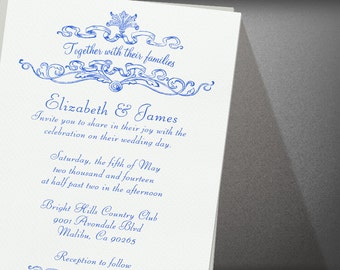 Together with their families
Elizabeth & James
Invite you to share in their joy with the
celebration on their wedding day.
Saturday, the fifth of May
two thousand and fourteen
at half past two in the afternoon
Bright Hills Country Club
9001 Avondale Blvd
Malibu, Ca 90265
Reception to follow